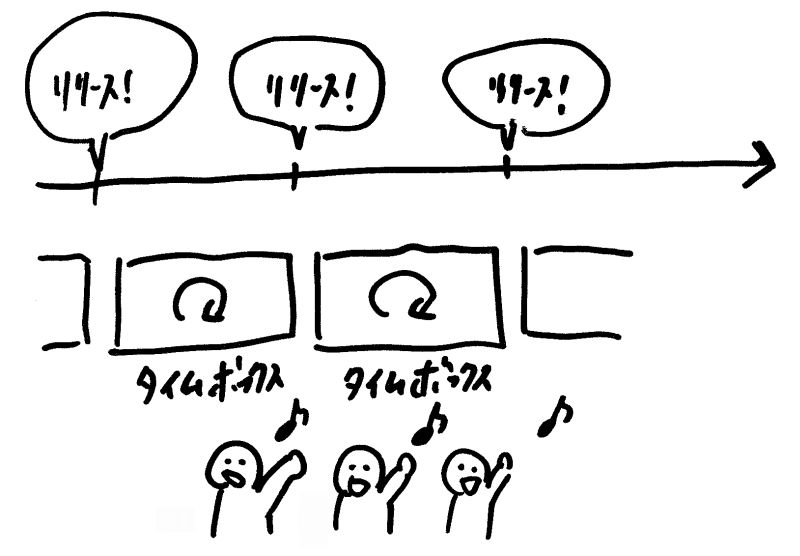 リリース!
リリース!
リリース!
タイムボックス
タイムボックス